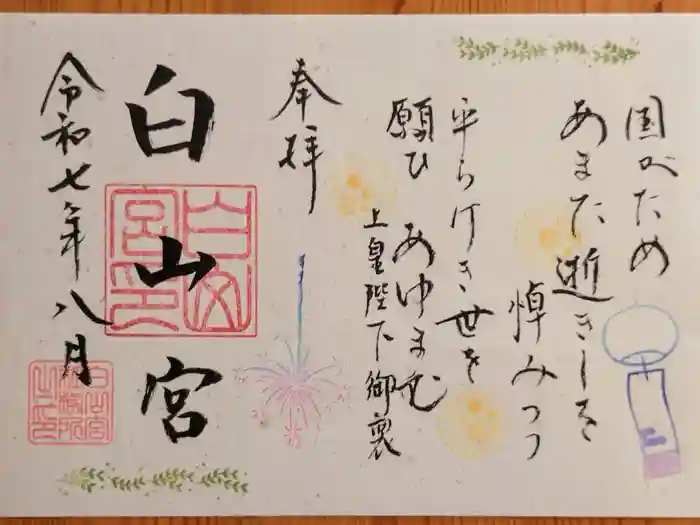 国がため
あまた逝きしを
悼みつつ
平らけき世を
願ひ あゆまむ
上皇陛下御製
奉拝
白山宮
白山宮印
令和七年八月